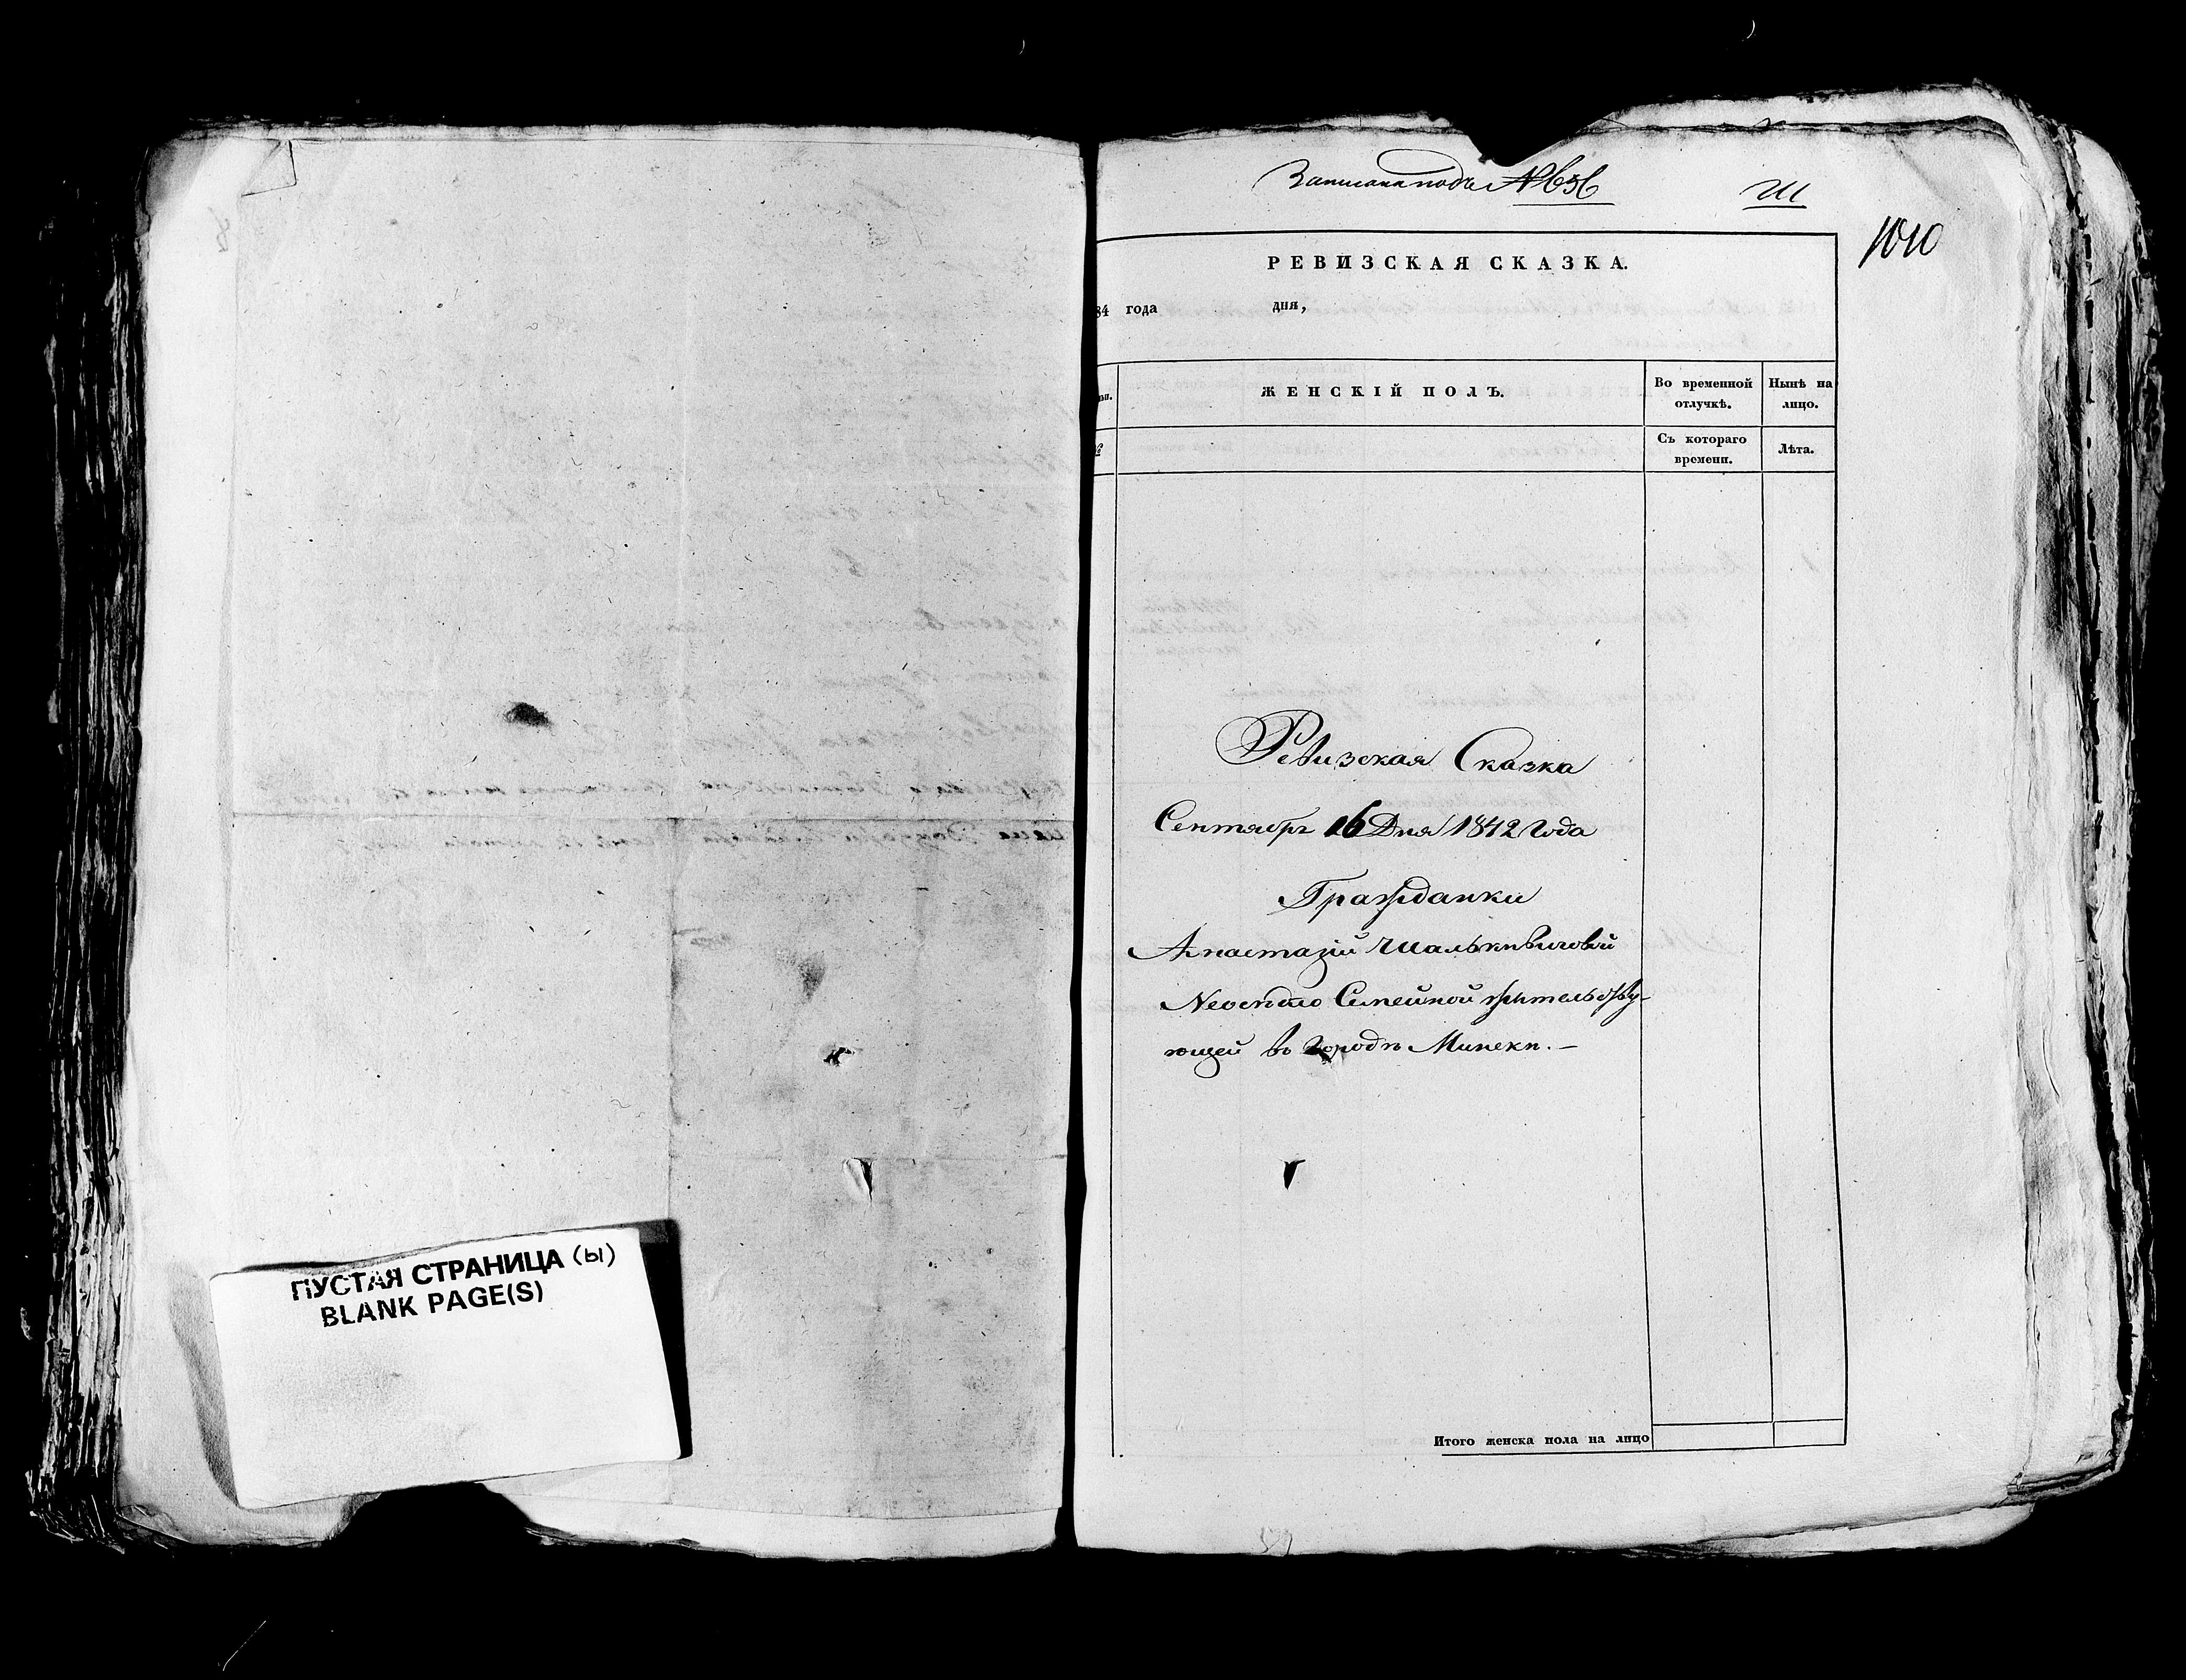 ПУСТАЯ СТРАНИЦА (ы)
BLANK PAGE(S)
Записана подъ № 656
Ш
1010
РЕВИЗСКАЯ СКАЗКА.
84 года дня,
ЖЕНСКІЙ ПОЛЪ.
Во временной отлучкѣ.
Нынѣ на лицо.
Съ котораго времени.
Лѣта.
Ревизская Сказка
Сентябрь 16 Дня 1842 Года
Гражданки
Анастазій Шалькевичовой
Неосѣдло Семейной жительству-
ющей въ городѣ Минскѣ. —
Итого женска пола на лицо